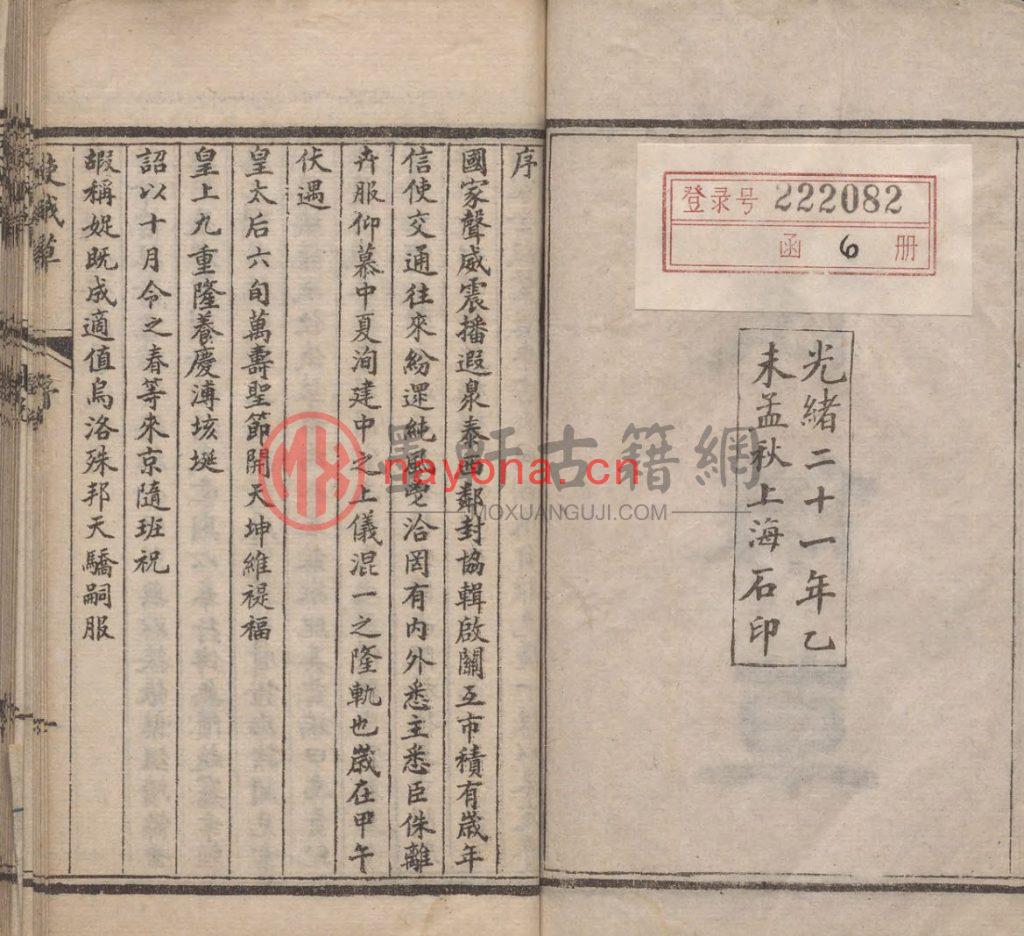 登录号 222082
函 6 册
光緒二十一年乙
未孟秋上海石印
序
國家聲威震播遐泉泰西鄰封協輯啟關互市積有歲年
信使交通往來紛遝純風 洽罔有內外悉主悉臣侏離
卉服仰慕中夏洵建中之上儀混一之隆軌也歲在甲午
伏遇
皇太后六旬萬壽聖節開天坤維禔福
皇上九重隆養慶溥垓埏
詔以十月令之春等來京隨班祝
嘏稱娖既成適值烏洛殊邦天驕嗣服
使俄草
墨軒古籍網
nayona.cn
MOXUANGUJI.COM